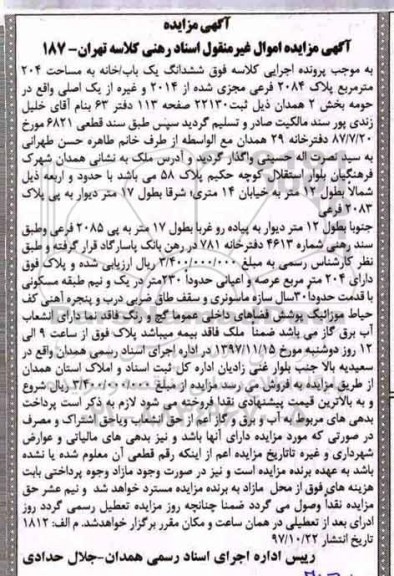 آگهی مزایده
آگهی مزایده اموال غیرمنقول اسناد رهنی کلاسه تهران- ۱۸۷
به موجب پرونده اجرایی کلاسه فوق ششدانگ یک باب/خانه به مساحت ۲۰۴
مترمربع پلاک ۲۰۸۴ فرعی مجزی شده از ۲۰۱۴ و غیره از یک اصلی واقع در
حومه بخش ۲ همدان ذیل ثبت ۲۲۱۳۰ صفحه ۱۱۳ دفتر ۶۳ بنام آقای خلیل
زندی پور سند مالکیت صادر و تسلیم گردید سپس طبق سند قطعی ۶۸۲۱ مورخ
۸۷/۷/۲۰ دفترخانه ۲۹ همدان مع الواسطه از طرف خانم طاهره حسن طهرانی
به سید نصرت اله حسینی واگذار گردید و آدرس ملک به نشانی همدان شهرک
فرهنگیان بلوار استقلال کوچه حکیم پلاک ۵۸ می باشد با حدود و اربعه ذیل
شمالا بطول ۱۲ متر به خیابان ۱۴ متری؛ شرقا بطول ۱۷ متر دیوار به پی پلاک
۲۰۸۳ فرعی
جنوبا بطول ۱۲ متر دیوار به پیاده رو غربا بطول ۱۷ متر به پی ۲۰۸۵ فرعی وطبق
سند رهنی شماره ۴۶۱۳ دفترخانه ۷۸۱ در رهن بانک پاسارگاد قرار گرفته و طبق
نظر کارشناس رسمی به مبلغ ۳/۴۰۰/۰۰۰/۰۰۰ ریال ارزیابی شده و پلاک فوق
دارای ۲۰۴ متر مربع عرصه و اعیانی حدوداً ۲۳۰متر در یک و نیم طبقه مسکونی
با قدمت حدوداً ۳۰سال سازه ماسونری و سقف طاق ضربی درب و پنجره آهنی کف
حیاط موزائیک پوشش فضاهای داخلی عموما گچ و رنگ فاقد نما دارای انشعاب
آب برق گاز می باشد ضمنا ملک فاقد بیمه میباشد پلاک فوق از ساعت ۹ الی
۱۲ روز دوشنبه مورخ ۱۳۹۷/۱۱/۱۵ در اداره اجرای اسناد رسمی همدان واقع در
سعیدیه بالا جنب بلوار غنی زادیان اداره کل ثبت اسناد و املاک استان همدان
از طریق مزایده به فروش می رسد مزایده از مبلغ ۳/۴۰۰/۰۰۰/۰۰۰ ریال شروع
و به بالاترین قیمت پیشنهادی نقدا فروخته می شود لازم به ذکر است پرداخت
بدهی های مربوط به آب و برق و گاز اعم از حق انشعاب ویاحق اشتراک و مصرف
در صورتی که مورد مزایده دارای آنها باشد و نیز بدهی های مالیاتی و عوارض
شهرداری و غیره تاتاریخ مزایده اعم از اینکه رقم قطعی آن معلوم شده یا نشده
باشد به عهده برنده مزایده است و نیز در صورت وجود مازاد وجوه پرداختی بابت
هزینه های فوق از محل مازاد به برنده مزایده مسترد خواهد شد و نیم عشر حق
مزایده نقداً وصول می گردد ضمنا چنانچه روز مزایده تعطیل رسمی گردد روز
ادرای بعد از تعطیلی در همان ساعت و مکان مقرر برگزار خواهدشد. م الف: ۱۸۱۲
تاریخ انتشار ۹۷/۱۰/۲۲
رییس اداره اجرای اسناد رسمی همدان-جلال حدادی